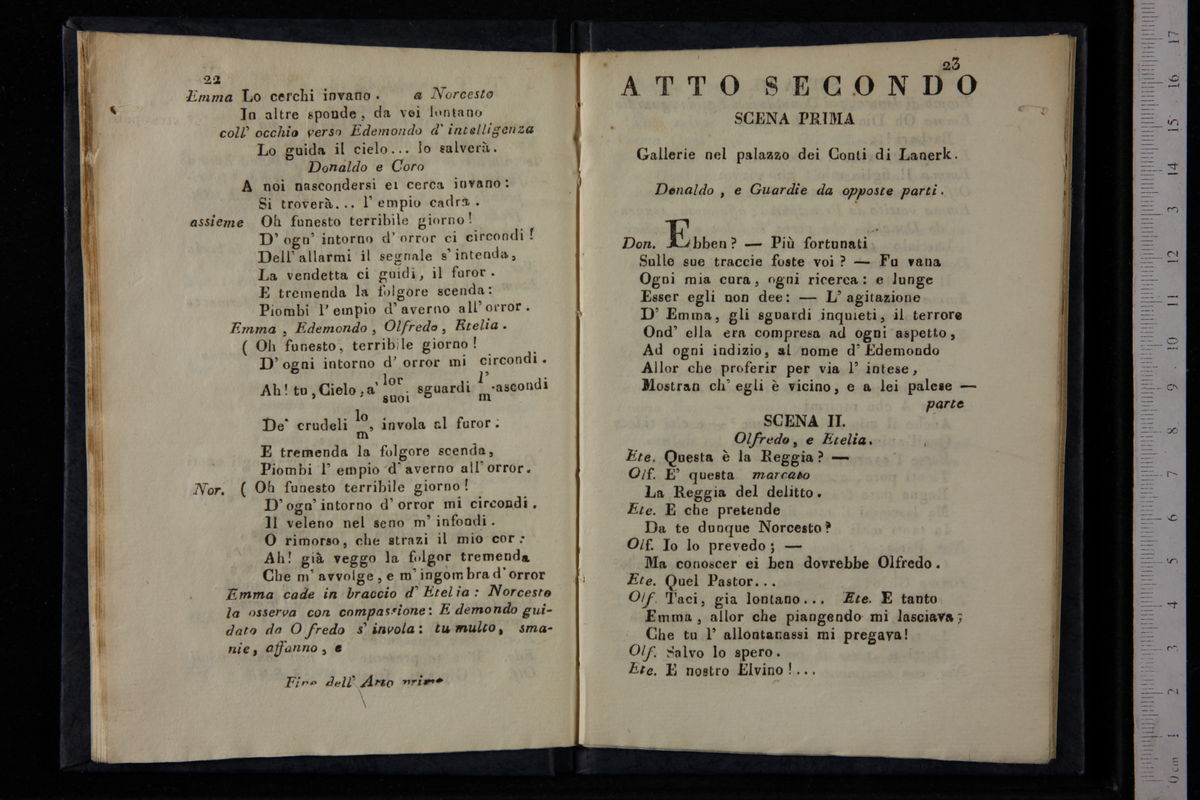 22
Emma Lo cerchi invano. a Norcesto
In altre sponde, da voi lontano
coll' occhio verso Edemondo d' intelligenza
Lo guida il cielo... lo salverà.
Donaldo e Coro
A noi nascondersi ei cerca invano:
Si troverà... l' empio cadrà.
assieme Oh funesto terribile giorno!
D' ogn' intorno d' orror ci circondi!
Dell' allarmi il segnale s' intenda,
La vendetta ci guidi, il furor.
E tremenda la folgore scenda:
Piombi l' empio d' averno all' orror.
Emma, Edemondo, Olfredo, Etelia.
( Oh funesto, terribile giorno!
D' ogni intorno d' orror mi circondi.
Ah! tu, Cielo, a' lor suoi sguardi l' m' ascondi
De' crudeli lo m', invola al furor:
E tremenda la folgore scenda,
Piombi l' empio d' averno all' orror.
Nor. ( Oh funesto terribile giorno!
D' ogn' intorno d' orror mi circondi.
Il veleno nel seno m' infondi.
O rimorso, che strazi il mio cor:
Ah! già veggo la folgor tremenda
Che m' avvolge, e m' ingombra d' orror
Emma cade in braccio d' Etelia: Norcesto
la osserva con compassione: Edemondo gui-
dato da Olfredo s' invola: tumulto, sma-
nie, affanno, e
Fine dell' Atto primo
23
ATTO SECONDO
SCENA PRIMA
Gallerie nel palazzo dei Conti di Lanerk.
Donaldo, e Guardie da opposte parti.
Don. Ebben? — Più fortunati
Sulle sue traccie foste voi? — Fu vana
Ogni mia cura, ogni ricerca: e lunge
Esser egli non dee: — L' agitazione
D' Emma, gli sguardi inquieti, il terrore
Ond' ella era compresa ad ogni aspetto,
Ad ogni indizio, al nome d' Edemondo
Allor che proferir per via l' intese,
Mostran ch' egli è vicino, e a lei palese —
parte
SCENA II.
Olfredo, e Etelia.
Ete. Questa è la Reggia? —
Olf. E' questa marcato
La Reggia del delitto.
Ete. E che pretende
Da te dunque Norcesto?
Olf. Io lo prevedo; —
Ma conoscer ei ben dovrebbe Olfredo.
Ete. Quel Pastor...
Olf. Taci, gia lontano... Ete. E tanto
Emma, allor che piangendo mi lasciava;
Che tu l' allontanassi mi pregava!
Olf. Salvo lo spero.
Ete. E nostro Elvino!...
0 cm 1 2 3 4 5 6 7 8 9 10 11 12 13 14 15 16 17